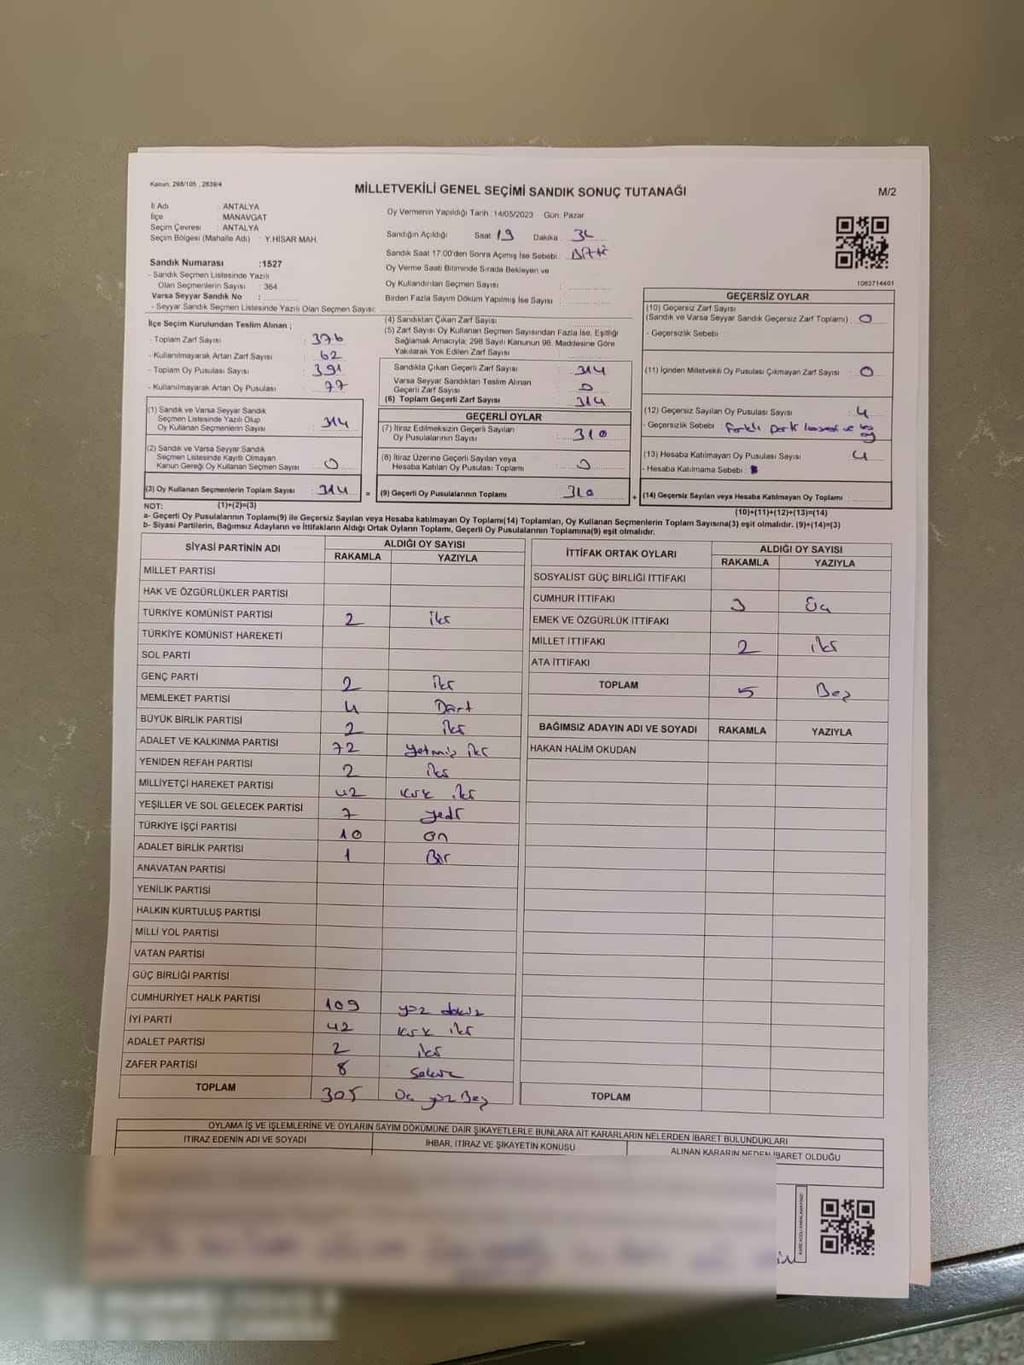 Kanun: 298/105 , 2839/4
MİLLETVEKİLİ GENEL SEÇİMİ SANDIK SONUÇ TUTANAĞI
M/2
İl Adı : ANTALYA
İlçe : MANAVGAT
Seçim Çevresi : ANTALYA
Seçim Bölgesi (Mahalle Adı) : Y.HİSAR MAH.
Oy Vermenin Yapıldığı Tarih :14/05/2023 Gün: Pazar
Sandığın Açıldığı Saat 19 Dakika
Sandık Saat 17:00'den Sonra Açılmış İse Sebebi :
Oy Verme Saati Bitiminde Sırada Bekleyen ve
Oy Kullandırılan Seçmen Sayısı
Birden Fazla Sayım Döküm Yapılmış İse Sayısı
Sandık Numarası :1527
- Sandık Seçmen Listesinde Yazılı
Olan Seçmenlerin Sayısı : 364
Varsa Seyyar Sandık No :
- Seyyar Sandık Seçmen Listesinde Yazılı Olan Seçmen Sayısı:
İlçe Seçim Kurulundan Teslim Alınan ;
- Toplam Zarf Sayısı : 376
- Kullanılmayarak Artan Zarf Sayısı : 62
- Toplam Oy Pusulası Sayısı : 391
- Kullanılmayarak Artan Oy Pusulası : 77
(1) Sandık ve Varsa Seyyar Sandık
Seçmen Listesinde Yazılı Olup
Oy Kullanan Seçmenlerin Sayısı : 314
(2) Sandık ve Varsa Seyyar Sandık
Seçmen Listesinde Kayıtlı Olmayan
Kanun Gereği Oy Kullanan Seçmen Sayısı : 0
(3) Oy Kullanan Seçmenlerin Toplam Sayısı : 314 =
NOT: (1)+(2)=(3)
(4) Sandıktan Çıkan Zarf Sayısı
(5) Zarf Sayısı Oy Kullanan Seçmen Sayısından Fazla İse, Eşitliği
Sağlamak Amacıyla, 298 Sayılı Kanunun 98. Maddesine Göre
Yakılarak Yok Edilen Zarf Sayısı
Sandıkta Çıkan Geçerli Zarf Sayısı : 314
Varsa Seyyar Sandıktan Teslim Alınan
Geçerli Zarf Sayısı : 0
(6) Toplam Geçerli Zarf Sayısı : 314
GEÇERLİ OYLAR
(7) İtiraz Edilmeksizin Geçerli Sayılan
Oy Pusulalarının Sayısı : 310
(8) İtiraz Üzerine Geçerli Sayılan veya
Hesaba Katılan Oy Pusulası Toplamı : 0
(9) Geçerli Oy Pusulalarının Toplamı : 310 +
1083714401
GEÇERSİZ OYLAR
(10) Geçersiz Zarf Sayısı
(Sandık ve Varsa Seyyar Sandık Geçersiz Zarf Toplamı) : 0
- Geçersizlik Sebebi
(11) İçinden Milletvekili Oy Pusulası Çıkmayan Zarf Sayısı : 0
(12) Geçersiz Sayılan Oy Pusulası Sayısı : 4
- Geçersizlik Sebebi : Farklı ve
(13) Hesaba Katılmayan Oy Pusulası Sayısı : 4
- Hesaba Katılmama Sebebi :
(14) Geçersiz Sayılan veya Hesaba Katılmayan Oy Toplamı
(10)+(11)+(12)+(13)=(14)
a- Geçerli Oy Pusulalarının Toplamı(9) ile Geçersiz Sayılan veya Hesaba katılmayan Oy Toplamı(14) Toplamları, Oy Kullanan Seçmenlerin Toplam Sayısına(3) eşit olmalıdır. (9)+(14)=(3)
b- Siyasi Partilerin, Bağımsız Adayların ve İttifakların Aldığı Oyların Toplamı, Geçerli Oy Pusulalarının Toplamına(9) eşit olmalıdır.
SİYASİ PARTİNİN ADI
ALDIĞI OY SAYISI
RAKAMLA YAZIYLA
MİLLET PARTİSİ
HAK VE ÖZGÜRLÜKLER PARTİSİ
TÜRKİYE KOMÜNİST PARTİSİ 2 iki
TÜRKİYE KOMÜNİST HAREKETİ
SOL PARTİ
GENÇ PARTİ 2 iki
MEMLEKET PARTİSİ 4 Dört
BÜYÜK BİRLİK PARTİSİ 2 iki
ADALET VE KALKINMA PARTİSİ 72 yetmiş iki
YENİDEN REFAH PARTİSİ 2 iki
MİLLİYETÇİ HAREKET PARTİSİ 42 kırk iki
YEŞİLLER VE SOL GELECEK PARTİSİ 7 yedi
TÜRKİYE İŞÇİ PARTİSİ 10 on
ADALET BİRLİK PARTİSİ 1 Bir
ANAVATAN PARTİSİ
YENİLİK PARTİSİ
HALKIN KURTULUŞ PARTİSİ
MİLLİ YOL PARTİSİ
VATAN PARTİSİ
GÜÇ BİRLİĞİ PARTİSİ
CUMHURİYET HALK PARTİSİ 109 yüz dokuz
İYİ PARTİ 42 kırk iki
ADALET PARTİSİ 2 iki
ZAFER PARTİSİ 8 Sekiz
TOPLAM 305 Üç yüz Beş
İTTİFAK ORTAK OYLARI
ALDIĞI OY SAYISI
RAKAMLA YAZIYLA
SOSYALİST GÜÇ BİRLİĞİ İTTİFAKI
CUMHUR İTTİFAKI 3 Üç
EMEK VE ÖZGÜRLÜK İTTİFAKI
MİLLET İTTİFAKI 2 iki
ATA İTTİFAKI
TOPLAM 5 Beş
BAĞIMSIZ ADAYIN ADI VE SOYADI RAKAMLA YAZIYLA
HAKAN HALİM OKUDAN
TOPLAM
OYLAMA İŞ VE İŞLEMLERİNE VE OYLARIN SAYIM DÖKÜMÜNE DAİR ŞİKAYETLERLE BUNLARA AİT KARARLARIN NELERDEN İBARET BULUNDUKLARI
İTİRAZ EDENİN ADI VE SOYADI İHBAR, İTİRAZ VE ŞİKAYETİN KONUSU ALINAN KARARIN NEDEN İBARET OLDUĞU